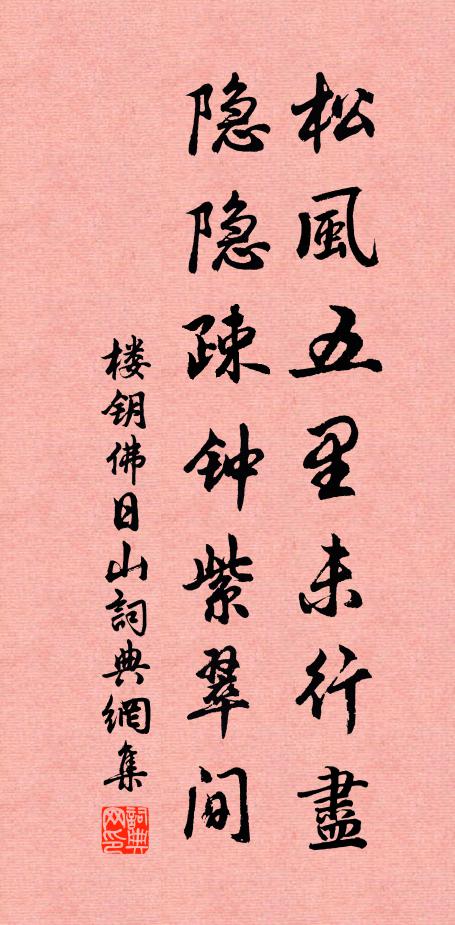 松風五里未行盡
隐隐疎钟紫翠间
楼钥佛日山詞典網集
詞典网印